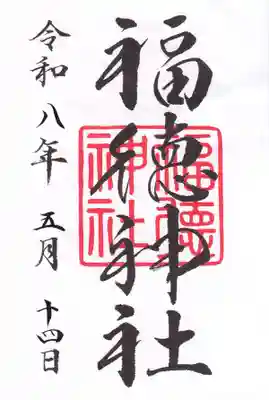 福徳神社
福德
神社
令和八年 五月 十四日